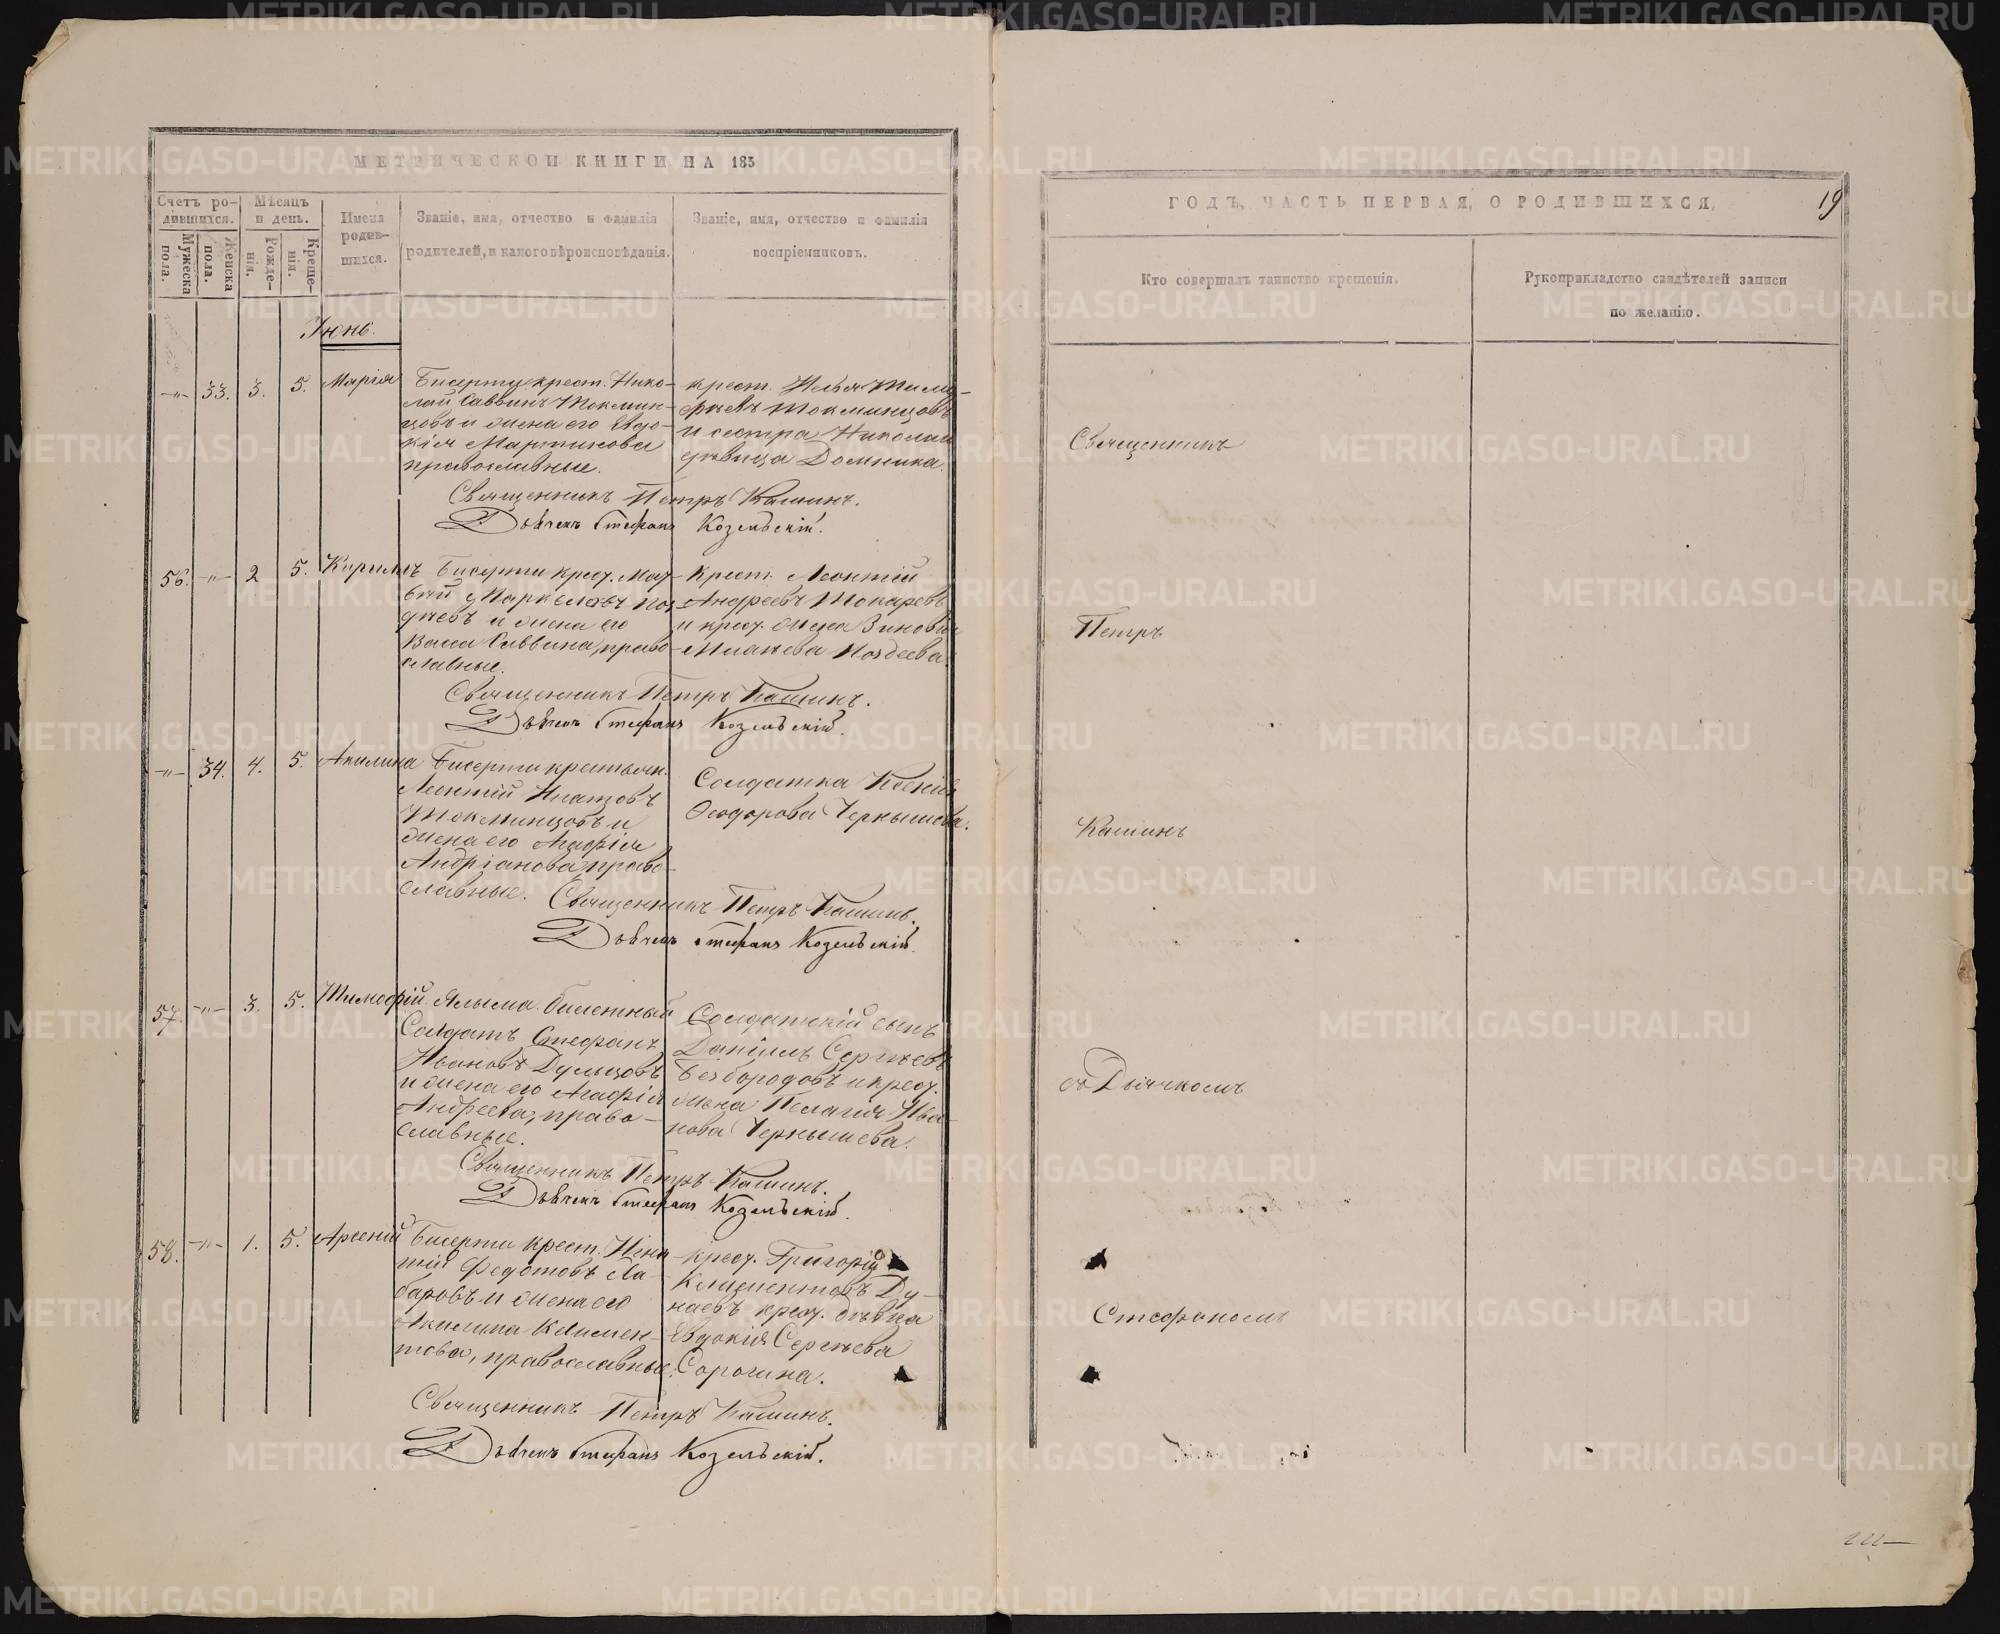 МЕТРИЧЕСКОЙ КНИГИ НА 185
Счетъ ро-
дившихся.
Мужеска
пола.
Женска
пола.
Мѣсяцъ
и день.
Рожде-
нія.
Креще-
нія.
Имена
родив-
шихся.
Званіе, имя, отчество и фамилія
родителей, и какого вѣроисповѣданія.
Званіе, имя, отчество и фамилія
воспріемниковъ.
Іюнь.
-"- 33. 3. 5. Марія
Бисерти крест. Нико-
лай Саввинъ Токмин-
цовъ и жена его Евдо-
кія Мартинова
православные.
крест. Илья Тимо-
фѣевъ Токминцовъ
и сестра Николая
дѣвица Домника.
Священникъ Петръ Кашинъ.
Дьячекъ Стефанъ Козельскій.
56. -"- 2 5. Кириллъ
Бисерти крест. Мат-
вѣй Маркеловъ Поз-
дѣевъ и жена его
Васса Саввина, право-
славные.
Крест. Леонтій
Андреевъ Токаревъ
и крест. жена Зиновія
Поздеева.
Священникъ Петръ Кашинъ.
Дьячекъ Стефанъ Козельскій.
-"- 34. 4. 5. Акилина
Бисерти крестьян.
Леонтій Игнатовъ
Токминцовъ и
жена его Агафія
Андріанова, право-
славные.
Солдатка Ксенія
Ѳеодорова Чернышева.
Священникъ Петръ Кашинъ.
Дьячекъ Стефанъ Козельскій.
57. -"- 3. 5. Тимофій
Ялыма билетный
Солдатъ Стефанъ
Ивановъ Дульцовъ
и жена его Агафія
Андреева, право-
славные.
Солдатскій сынъ
Даніилъ Сергѣевъ
Безбородовъ и крест.
жена Пелагія Ива-
нова Чернышева.
Священникъ Петръ Кашинъ.
Дьячекъ Стефанъ Козельскій.
58. -"- 1. 5. Арсеній
Бисерти крест. Игна-
тій Федотовъ Ла-
баровъ и жена его
Акилина Климен-
това, православные.
крест. Григорій
Климентовъ Ду-
наевъ крест. дѣвка
Евдокія Сергѣева
Сорокина.
Священникъ Петръ Кашинъ.
Дьячекъ Стефанъ Козельскій.
ГОДЪ, ЧАСТЬ ПЕРВАЯ, О РОДИВШИХСЯ,
19
Кто совершалъ таинство крещенія.
Рукоприкладство свидѣтелей записи
по желанію.
Священникъ
Петръ
Кашинъ
съ Дьячкомъ
Стефаномъ
METRIKI.GASO-URAL.RU